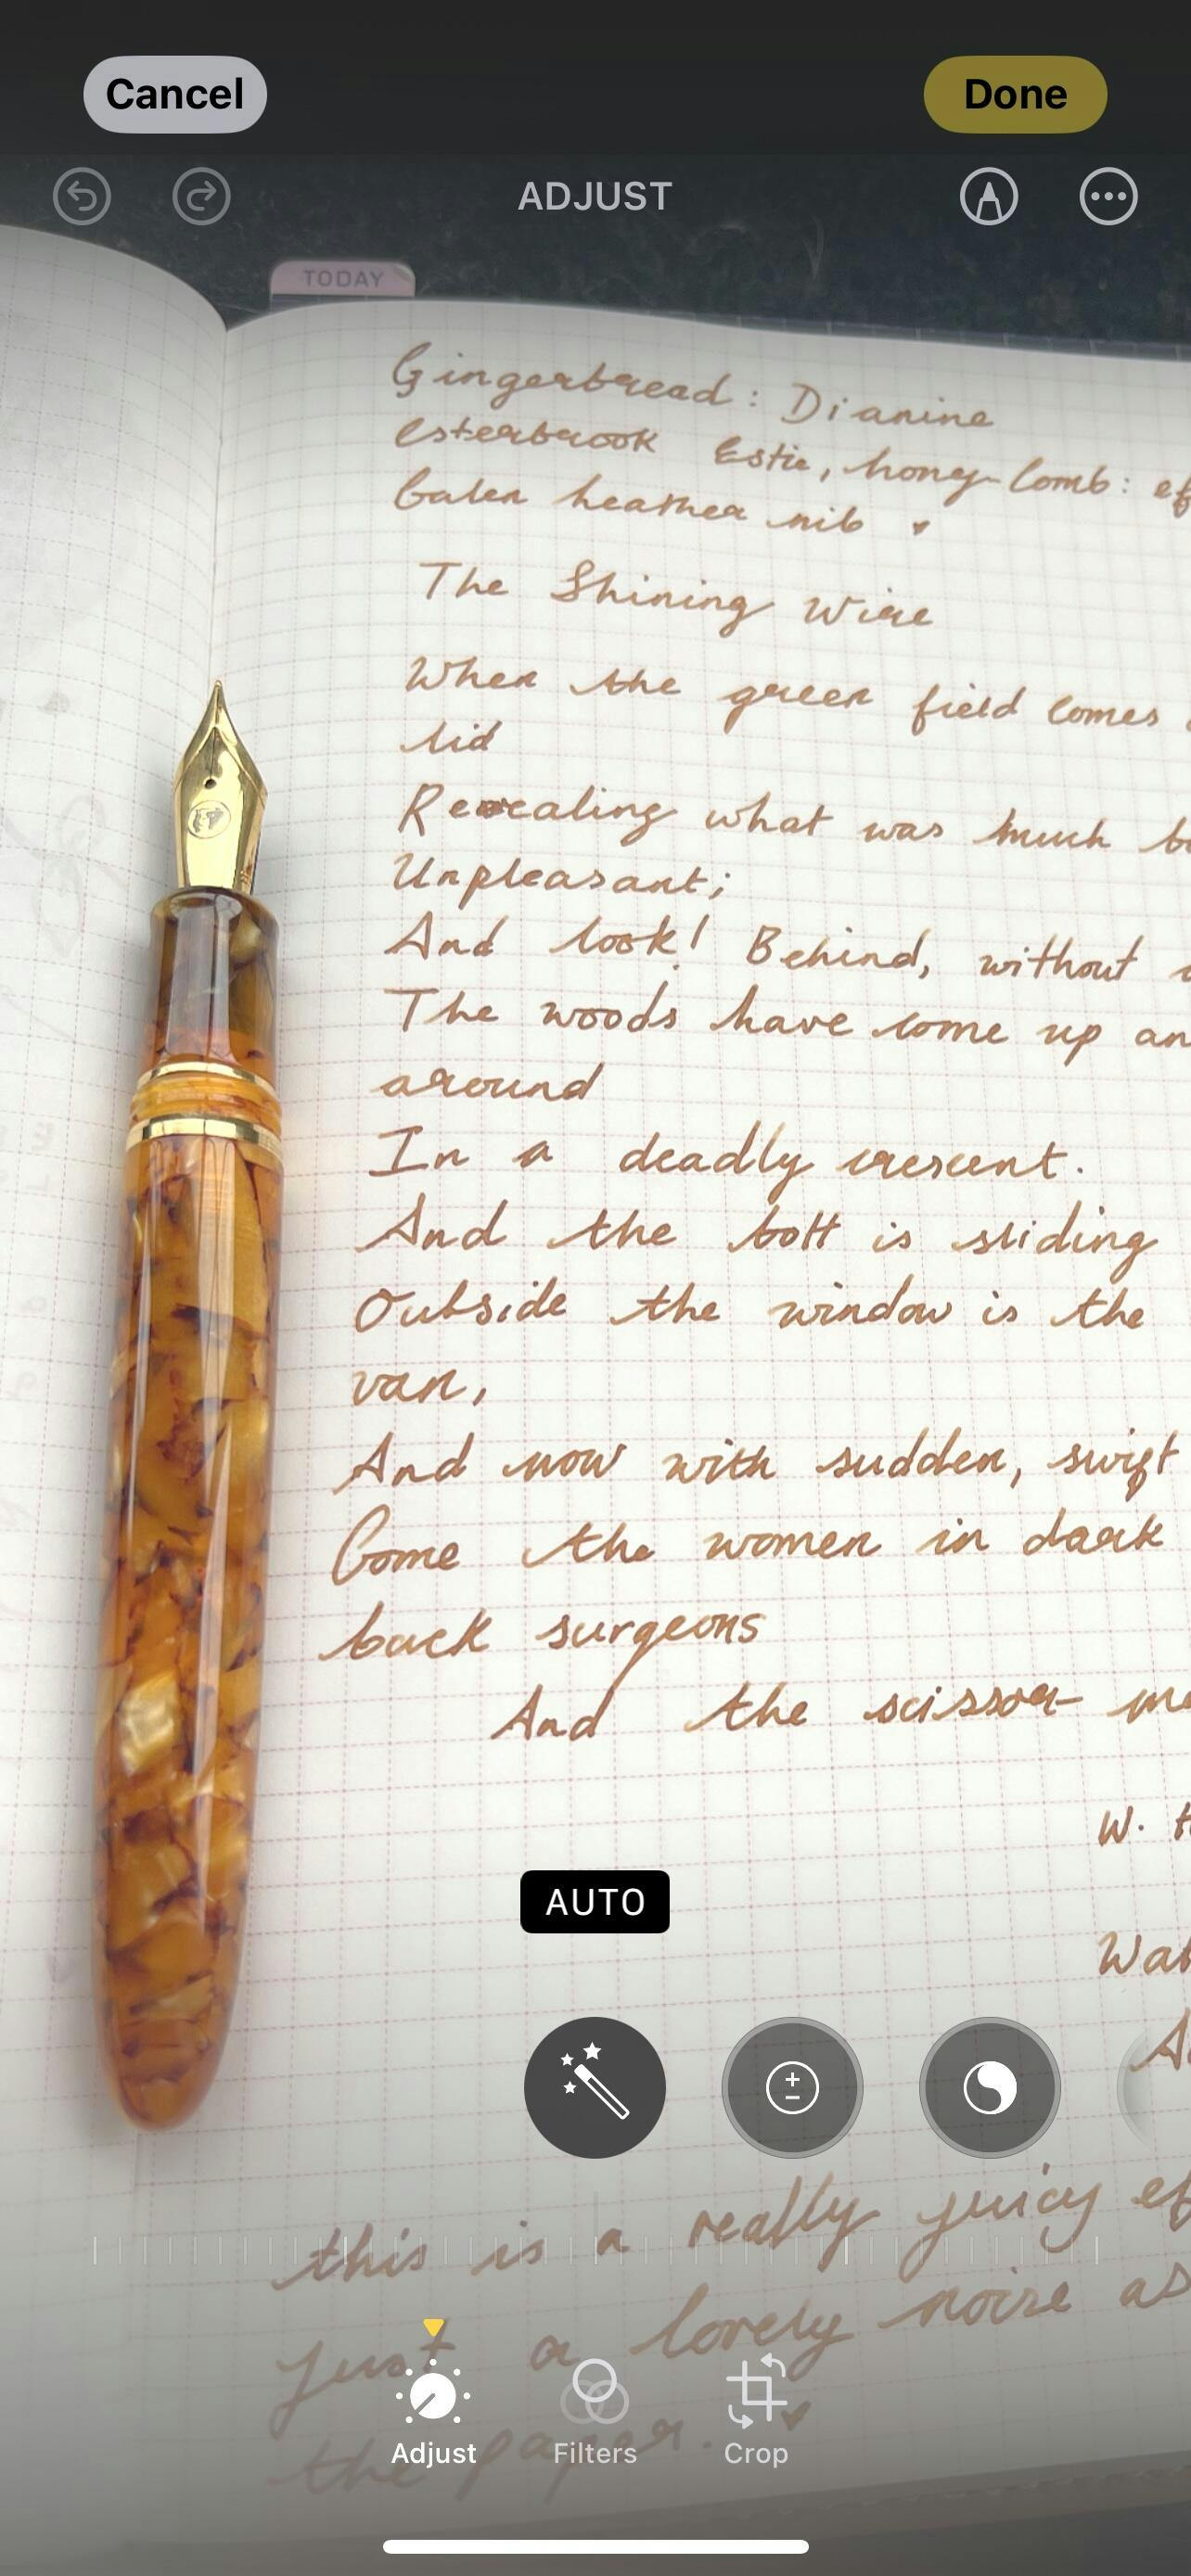 Cancel Done
ADJUST
TODAY
Gingerbread: Dianine
esterbrook Estie, hony-comb: ef
Galen heather nib ♥
The Shining Wire
When the green field comes
lid
Revealing what was much b
Unpleasant;
And look! Behind, without
The woods have come up an
around
In a deadly crescent.
And the bolt is sliding
Outside the window is the
van,
And now with sudden, swift
Come the women in dark
back surgeons
And the scissor me
W.
AUTO
Wat
A
this is a really juicy ef
just a lovely noise as
the paper. ♥
Adjust Filters Crop